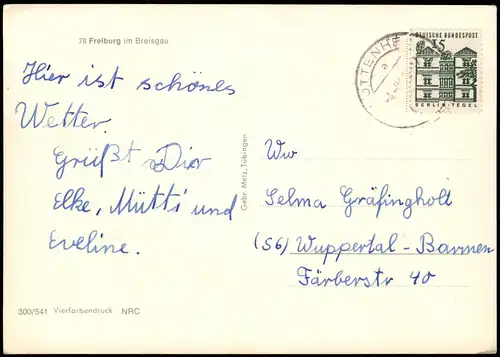 78 Freiburg im Breisgau
Hier ist schönes
Wetter.
Grüßt Dir
Elke, Mutti und
Eveline.
300/541 Vierfarbendruck NRC
Gebr. Metz, Tübingen
DEUTSCHE BUNDESPOST
15
BERLIN-TEGEL
OTTENH
a
Ww
Selma Gräfingholt
(56) Wuppertal-Barmen
Färberstr 40